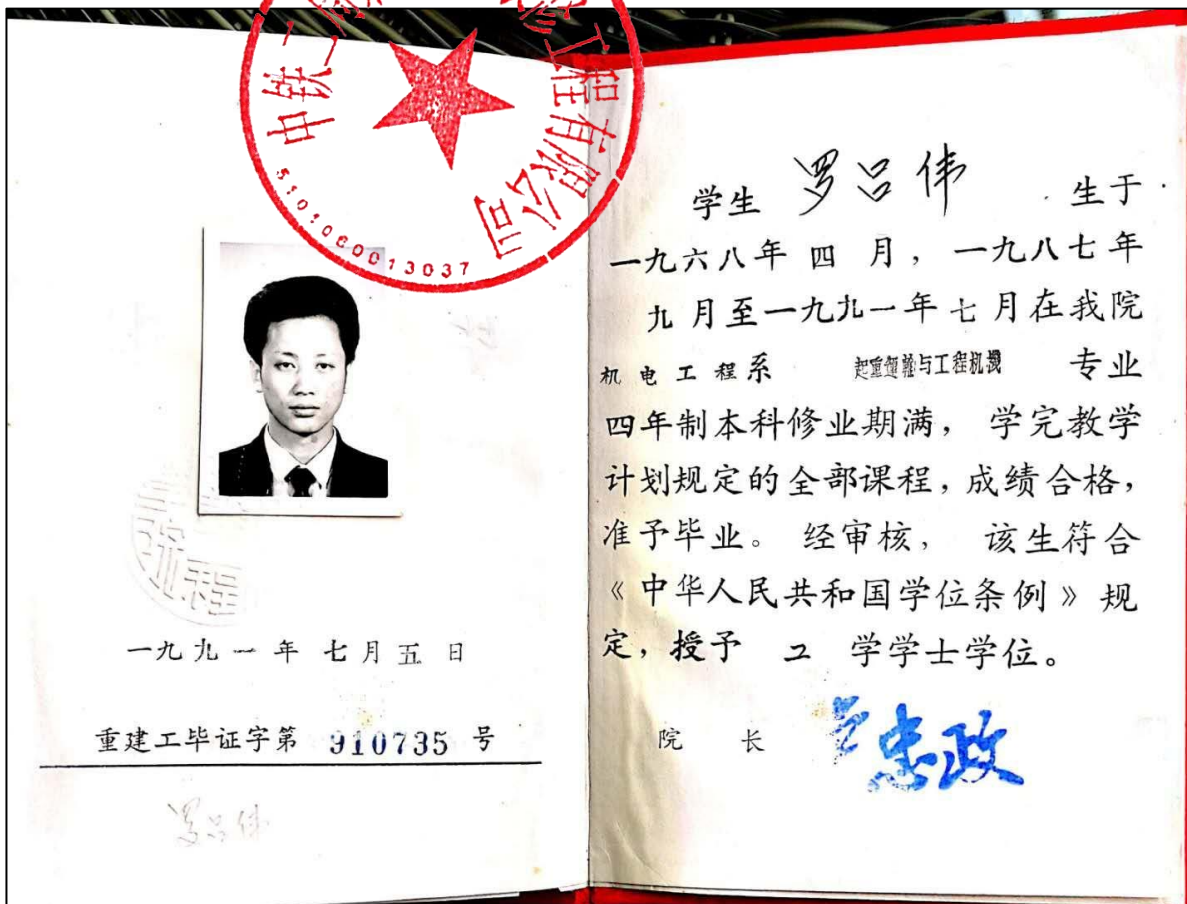 中铁二
工程有限公司
5101060013037
一九九一年七月五日
重建工毕证字第 910735 号
罗吕伟
学生 罗吕伟 生于
一九六八年四月，一九八七年
九月至一九九一年七月在我院
机电工程系 起重运输与工程机械 专业
四年制本科修业期满，学完教学
计划规定的全部课程，成绩合格，
准予毕业。经审核，该生符合
《中华人民共和国学位条例》规
定，授予 工 学学士学位。
院长 忠政